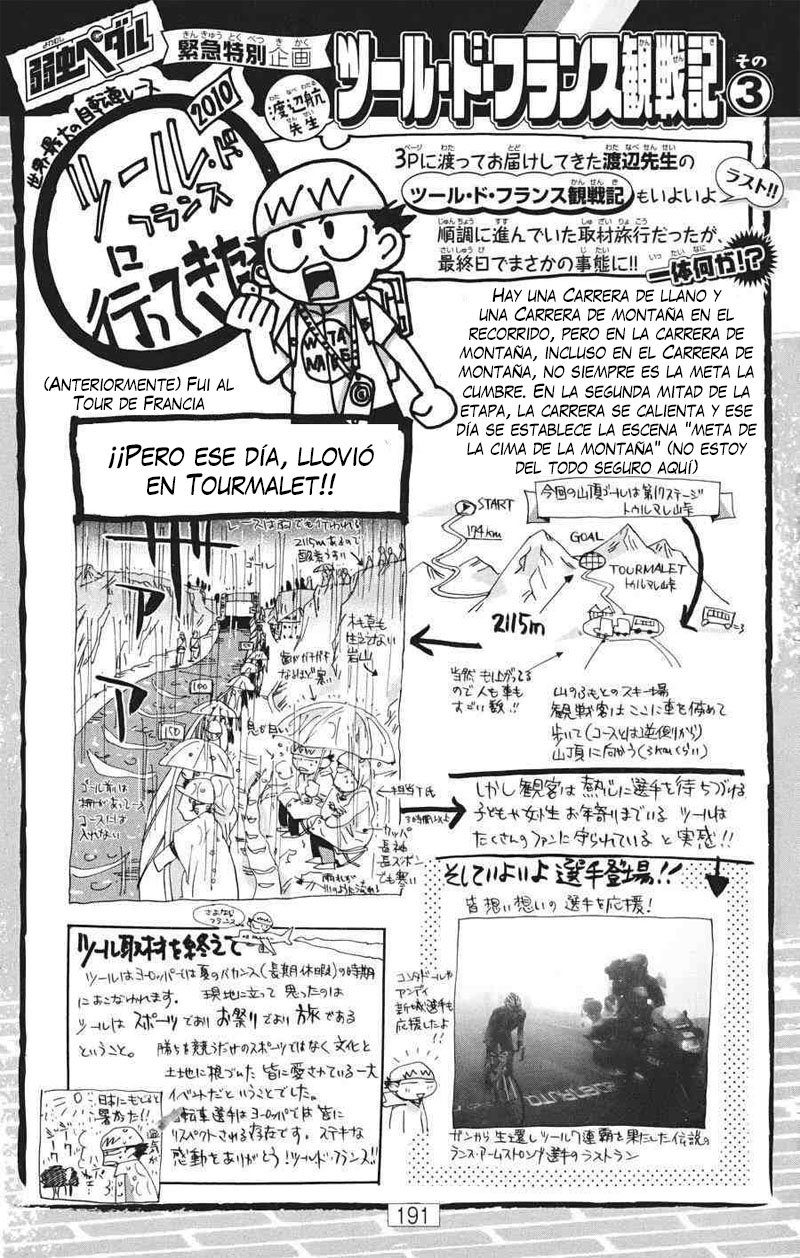 弱虫ペダル
緊急特別企画
渡辺航先生
ツール・ド・フランス観戦記
その3
世界最大の自転車レース
2010
ツール・ド
フランス
に
行ってきた
3Pに渡ってお届けしてきた渡辺先生の
ツール・ド・フランス観戦記もいよいよラスト!!
順調に進んでいた取材旅行だったが、
最終日でまさかの事態に!!
一体何が!?
(Anteriormente) Fui al
Tour de Francia
Hay una Carrera de llano y
una Carrera de montaña en el
recorrido, pero en la carrera de
montaña, incluso en el Carrera de
montaña, no siempre es la meta la
cumbre. En la segunda mitad de la
etapa, la carrera se calienta y ese
día se establece la escena "meta de
la cima de la montaña" (no estoy
del todo seguro aquí)
¡¡Pero ese día, llovió
en Tourmalet!!
START
174km
今回の山頂ゴールは第17ステージ
トゥルマレ山峠
GOAL
TOURMALET
トゥルマレ山峠
2115m
当然 も上がってる
ので人も車も
すごい数!!
山のふもとのスキー場
観戦客はここに車を停めて
歩いて(コースとは逆側から)
山頂に向かう(3kmくらい)
レースは雨でも行われる
2115mあるので
酸素うすい
ゴール
木も草も
生えてない
岩山
歯がガチガチ
なるほど寒い
100
150
息が白い
ゴール前は
柵があってレース
コースには
入れない
担当T氏
カッパ
長袖
長ズボン
でも寒い
しかし観客は熱心に選手を待ちつづける
子どもや女性 お年寄りまでいる ツールは
たくさんのファンに守られている と実感!!
そしていよいよ選手登場!!
皆想い想いの選手を応援!
コンタドールや
アンディ
新城選手も
応援したよ!!
ガンから生還しツール7連覇を果たした伝説の
ランス・アームストロング選手のラストラン
さよなら
フランス
ツール取材を終えて
ツールはヨーロッパでは夏のバカンス(長期休暇)の時期
におこなわれます。 現地に立って思ったのは
ツールは スポーツであり お祭りであり 旅である
ということ。 勝ちを競うだけのスポーツではなく 文化と
土地に根づいた 皆に愛されている一大
イベントだということでした。
自転車選手はヨーロッパでは皆に
リスペクトされる存在です。ステキな
感動をありがとう!ツール・ド・フランス!!
日本にもどると
暑かった!!
湿気が
191